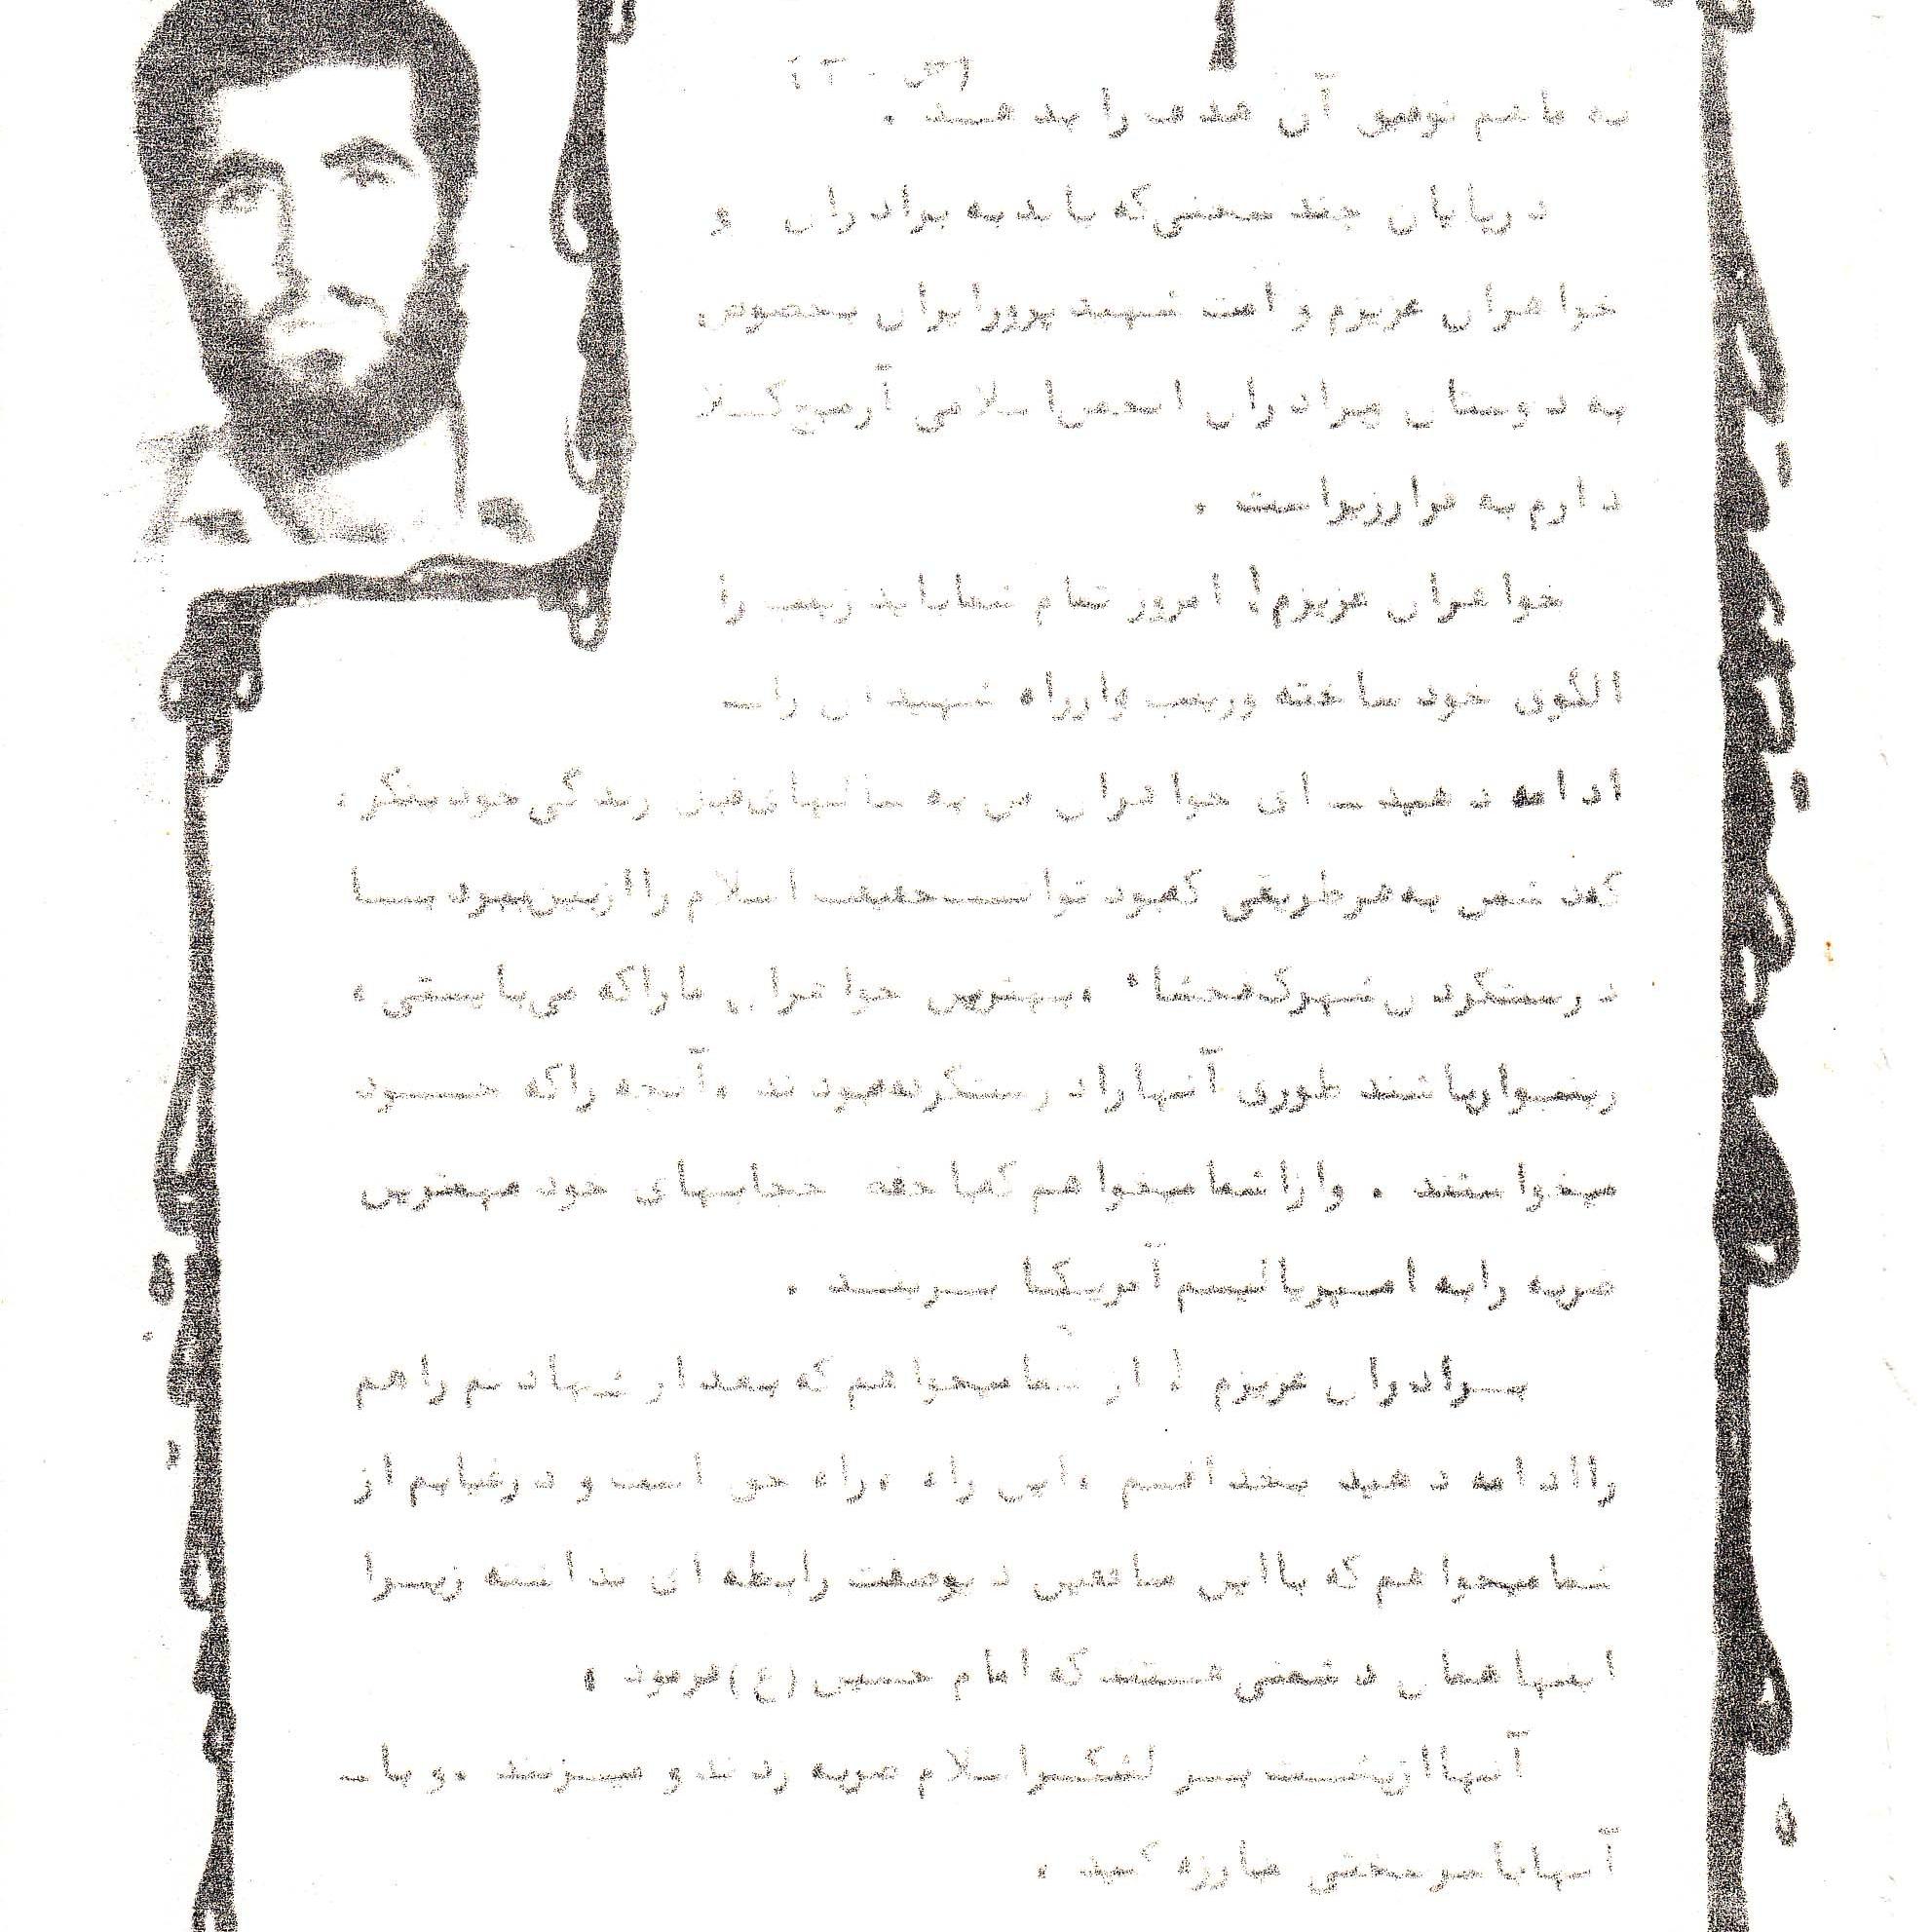 به ما هم توفیق آن هدف را بدهد .
در پایان چند سخنی که باید به برادران و
خواهران عزیزم و امت شهید پرور ایران بخصوص
به دوستان و برادران انجمن اسلامی آرمیچ کلا
دارم به قرار زیر است .
خواهران عزیزم! امروز تمام شما باید زینب را
الگوی خود ساخته و زینب وار راه شهیدان را
ادامه دهید ای خواهران من به سالهای قبل زندگی خود بنگر
که دشمن به هر طریقی که بود توانست حقیقت اسلام را از بین ببرد بـا
درست کردن شهرک فحشاء ، بهترین خواهران ما را که می بایستی
زینب وار باشند طوری آنها را درست کرده بودند ، آنچه را که خود
میخواستند . و از شما میخواهم که با حفظ حجابهای خود بهترین
ضربه را به امپریالیسم آمریکا بـزنیـد .
بـرادران عزیزم ! از شما میخواهم که بعد از شهادتم راهم
را ادامه دهید بخدا قسم ، این راه ، راه حق است و در غیابم از
شما میخواهم که با این منافقین دیو صفت رابطه ای نداشته زیـرا
اینها همان دشمنی هستند که امام حسین (ع) فرمود ،
آنها از پشت بـر لشگـر اسلام ضربه زدند و میـزنند ، و با
آنها با سرسختی مبارزه کنید .